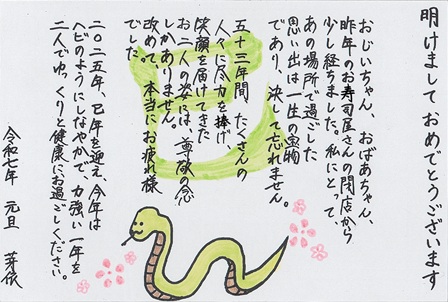 明けましておめでとうございます
おじいちゃん、おばあちゃん、
昨年のお寿司屋さんの閉店から
少し経ちました。私にとって
あの場所で過ごした
思い出は一生の宝物
であり、決して忘れません。
五十三年間 たくさんの
人々に尽力を捧げ
笑顔を届けてきた
お二人の姿には、尊敬の念
しかありません。
改めて、本当にお疲れ様
でした。
二〇二五年、巳年を迎え、今年は
ヘビのようにしなやかで、力強い一年を
二人でゆっくりと健康にお過ごしください。
令和七年 元旦 芽依
巳